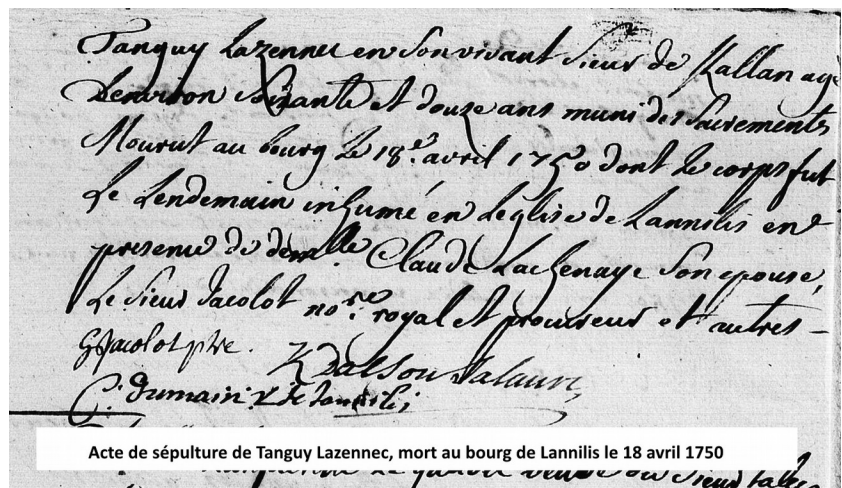 Tanguy Lazennec en Son vivant Sieur de Kallan agé
Denviron Soixante et douze ans muni des Sacrements
Mourut au bourg le 18.e avril 1750 dont le corps fut
Le Lendemain inhumé en Leglise de Lannilis en
presence de demlle Claude Lachenaye Son epouse,
Le Sieur Jacolot nore royal et procureur et autres -
GJacolot ptre.
C. dumain
Acte de sépulture de Tanguy Lazennec, mort au bourg de Lannilis le 18 avril 1750